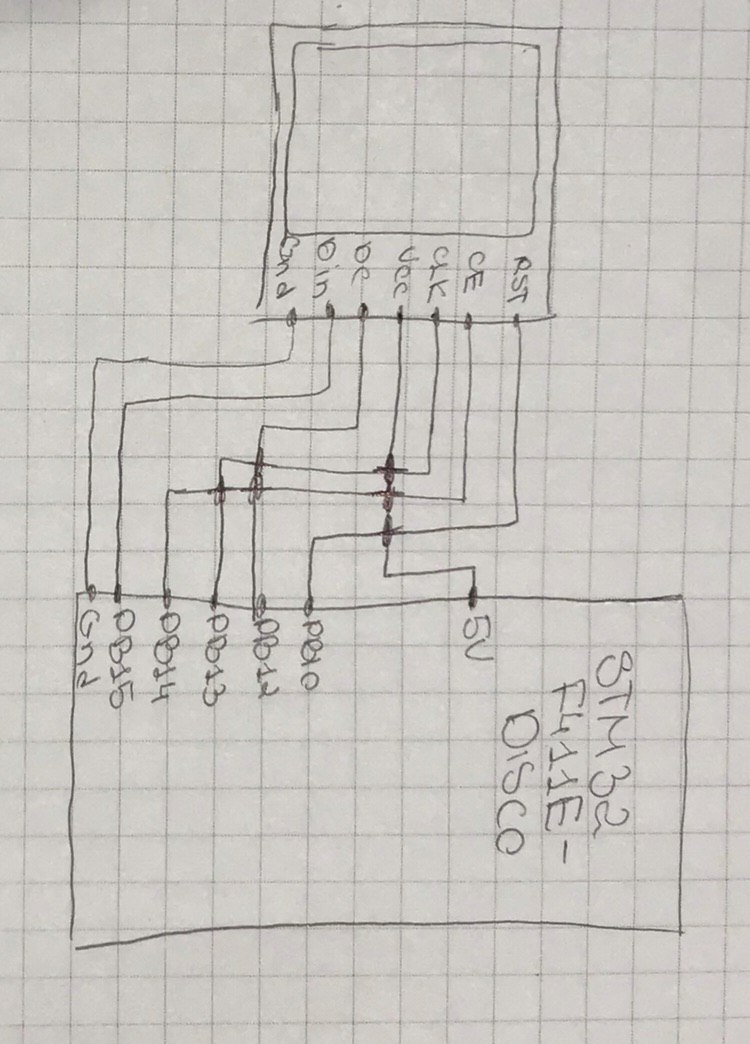 Gnd
Din
DC
Vcc
CLK
CE
RST
Gnd
PB15
PB14
PB13
PB12
PB10
5V
STM32
F411E-
DISCO